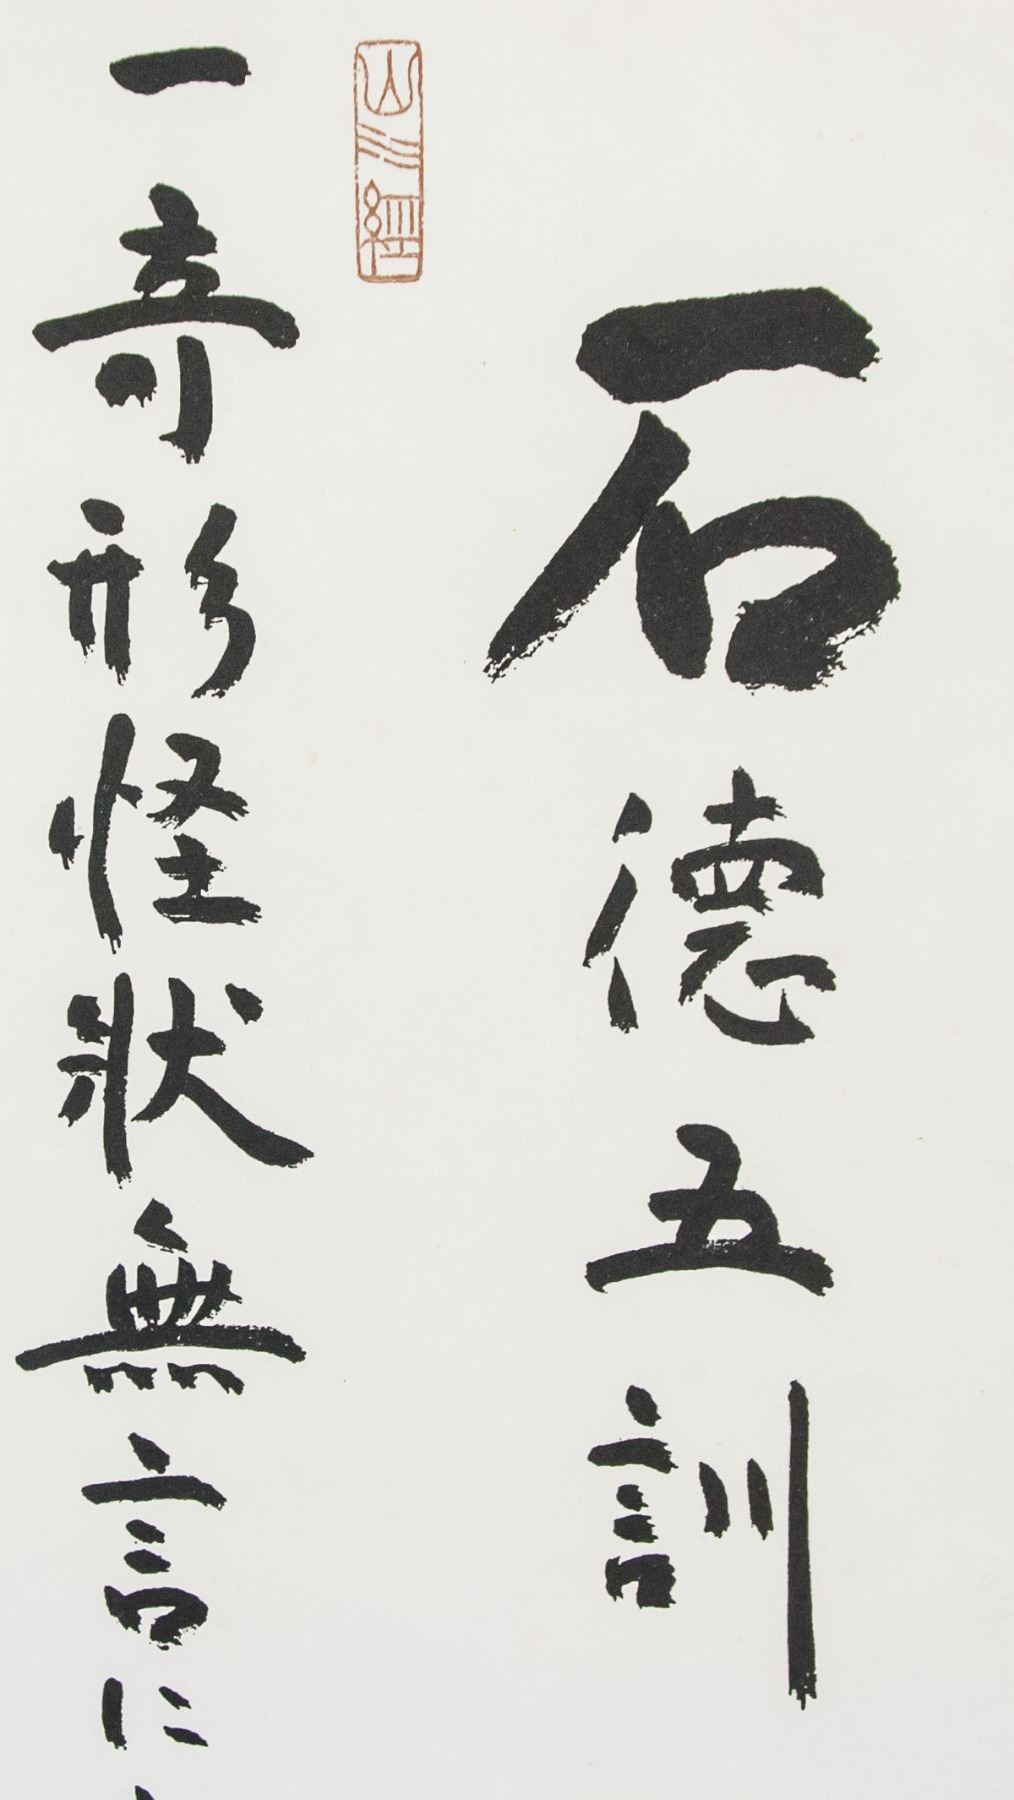 石德五訓
一奇形怪狀無言に